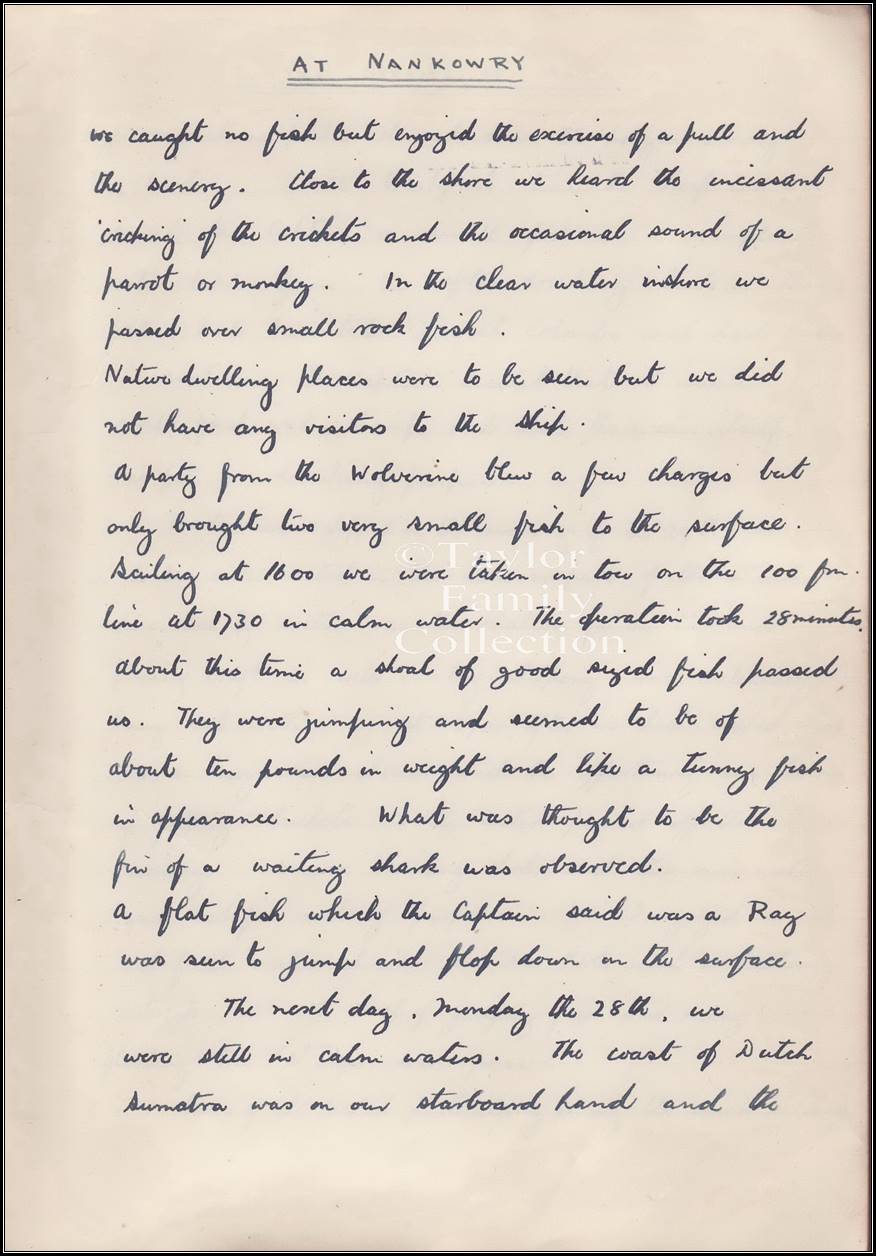 AT NANKOWRY
we caught no fish but enjoyed the exercise of a pull and
the scenery. Close to the shore we heard the incessant
'cricking' of the crickets and the occasional sound of a
parrot or monkey. In the clear water inshore we
passed over small rock fish.
Native dwelling places were to be seen but we did
not have any visitors to the ship.
A party from the Wolverine blew a few charges but
only brought two very small fish to the surface.
Sailing at 1600 we were taken in tow on the 100 fm.
line at 1730 in calm water. The operation took 28 minutes.
About this time a shoal of good sized fish passed
us. They were jumping and seemed to be of
about ten pounds in weight and like a tunny fish
in appearance. What was thought to be the
fin of a waiting shark was observed.
A flat fish which the Captain said was a Ray
was seen to jump and flop down on the surface.
The next day, Monday the 28th, we
were still in calm waters. The coast of Dutch
Sumatra was on our starboard hand and the
©Taylor
Family
Collection